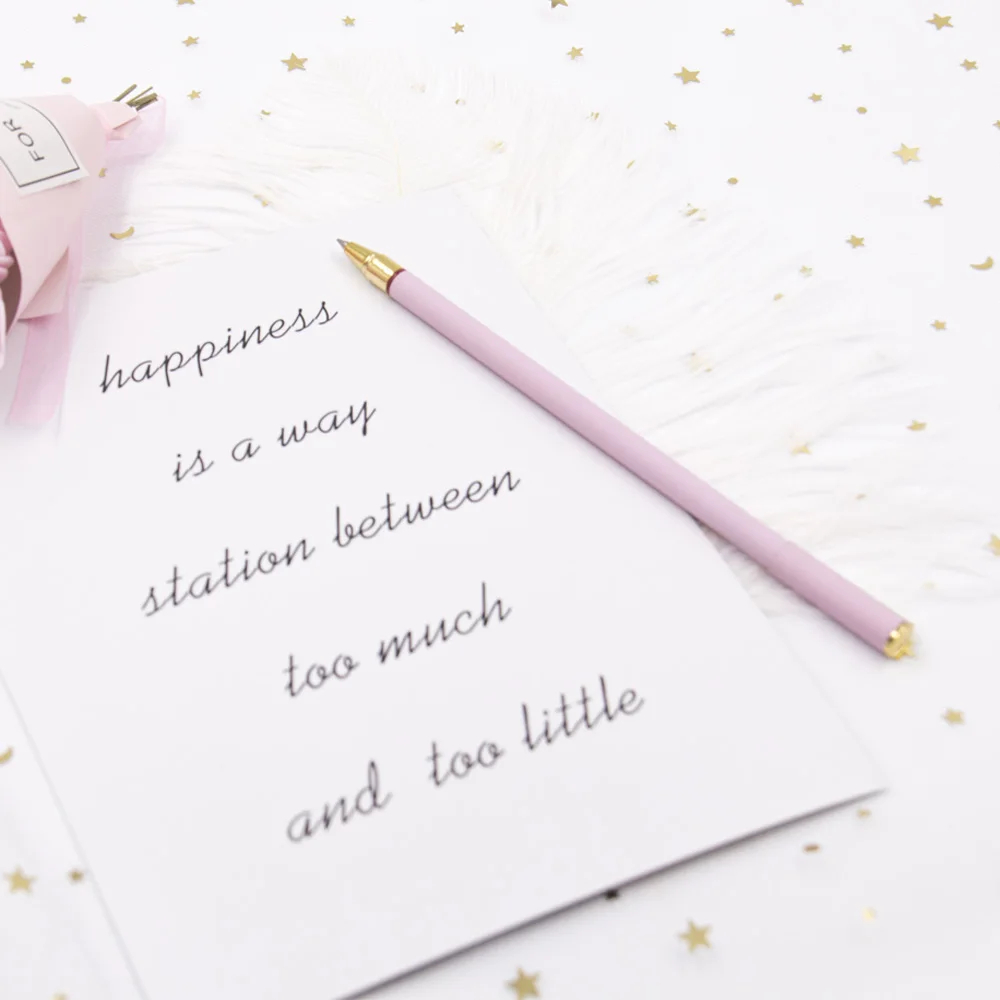 FOR
happiness
is a way
station between
too much
and too little